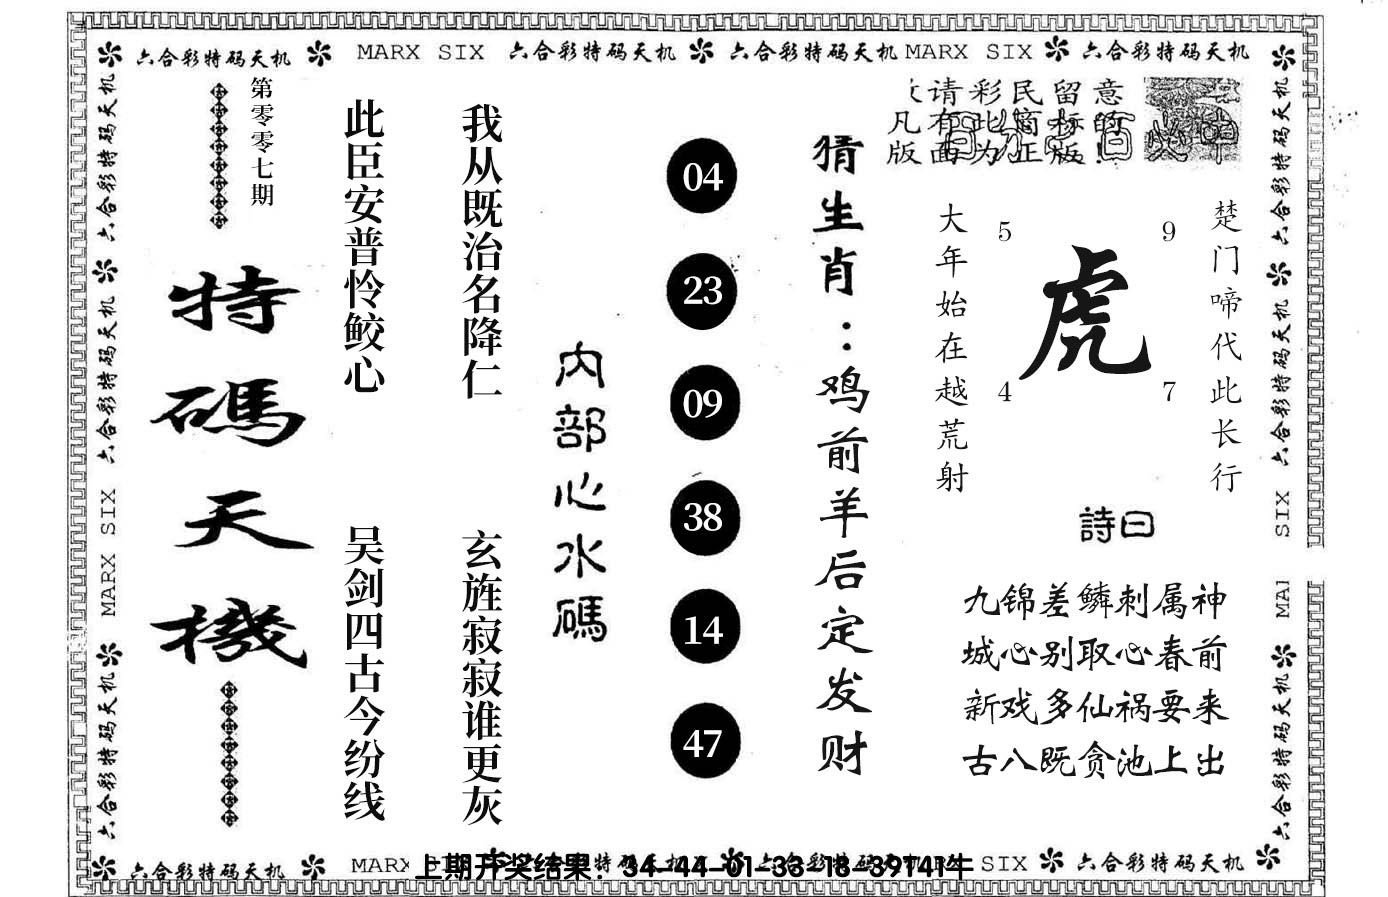 六合彩特码天机 MARX SIX 六合彩特码天机 六合彩特码天机 MARX SIX 六合彩特码天机
六合彩特码天机
六合彩特码天机
MARX SIX
六合彩特码天机
第零零七期
特碼天機
此臣安普怜鲛心
吴剑四古今纷线
我从既治名降仁
玄旌寂寂谁更灰
内部心水碼
04
23
09
38
14
47
猜生肖：鸡前羊后定发财
请彩民留意
凡有此商标的
版面为正版!
大年始在越荒射
5
9
虎
4
7
楚门啼代此长行
詩曰
九锦差鳞刺属神
城心别取心春前
新戏多仙祸要来
古八既贪池上出
六合彩特码天机
六合彩特码天机
SIX
六合彩特码天机
六合彩特码天机 MARX
上期开奖结果：34-44-01-33-18-39T41牛
SIX 六合彩特码天机